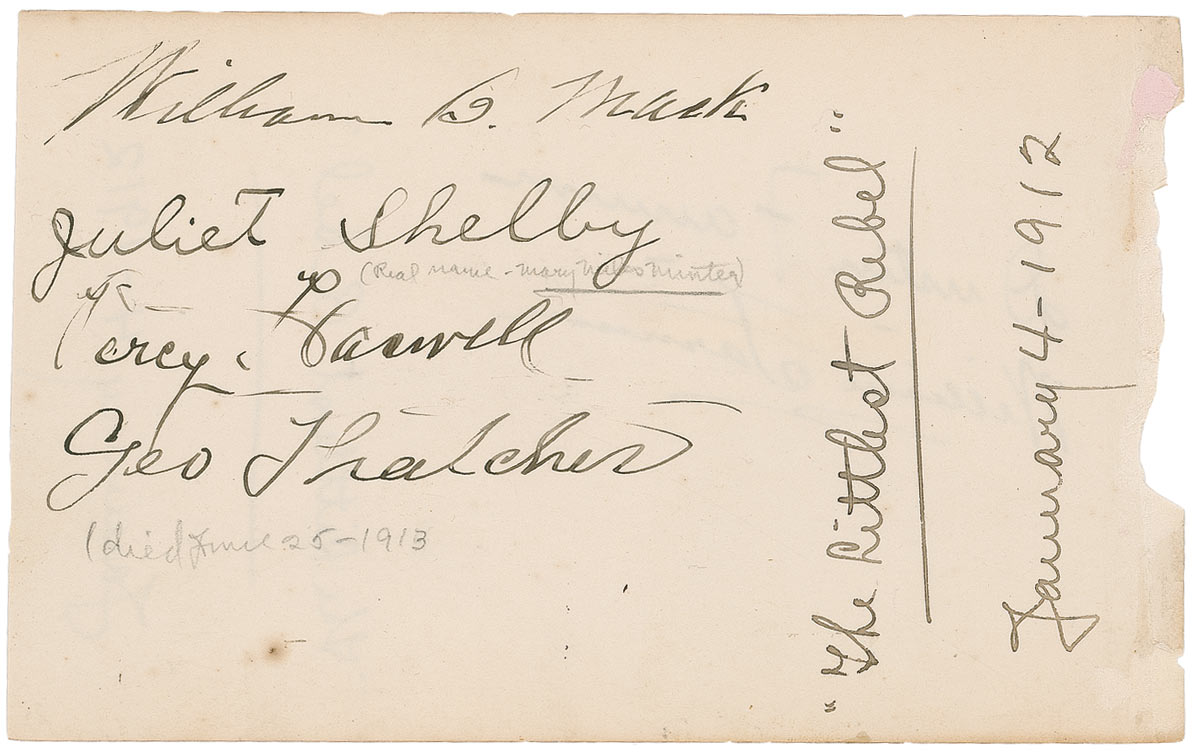 William B. Mack
Juliet Shelby
(Real name - Mary Miles Minter)
Percy. Haswell
Geo Thatcher
(died June 25-1913
"The Littlest Rebel"
January 4-1912